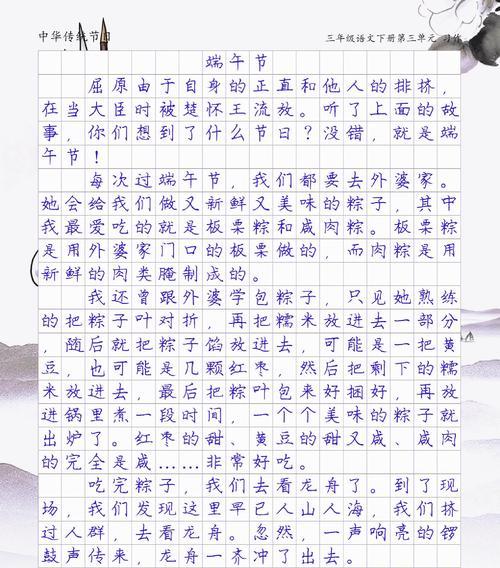 中华传统节日
三年级语文下册第三单元 习作
端午节
屈原由于自身的正直和他人的排挤，
在当大臣时被楚怀王流放。听了上面的故
事，你们想到了什么节日？没错，就是端
午节！
每次过端午节，我们都要去外婆家。
她会给我们做又新鲜又美味的粽子，其中
我最爱吃的就是板栗粽和咸肉粽。板栗粽
是用外婆家门口的板栗做的，而肉粽是用
新鲜的肉类腌制成的。
我还曾跟外婆学包粽子，只见她熟练
的把粽子叶对折，再把糯米放进去一部分
，随后就把粽子馅放进去，可能是一把黄
豆，也可能是几颗红枣，然后把剩下的糯
米放进去，最后把粽叶包来好捆好，再放
进锅里煮一段时间，一个个美味的粽子就
出炉了。红枣的甜、黄豆的甜又咸、咸肉
的完全是咸……非常好吃。
吃完粽子，我们去看龙舟了。到了现
场，我们发现这里早已人山人海，我们挤
过人群，去看龙舟。忽然，一声响亮的锣
鼓声传来，龙舟一齐冲了出去。